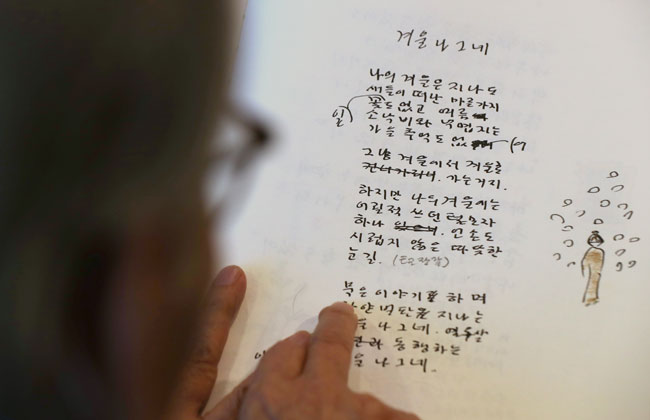 겨울 나그네
나의 겨울은 지나도
새들이 떠난 마른가지
꽃도 없고 여름
잎
소낙비와 낙엽지는
가을 추억도 없
그냥 겨울에서 겨울로
건너가는거지.
하지만 나의 겨울에는
어릴적 쓰던 털모자
하나 언손도
시렵지 않은 따뜻한
눈길. (토끼장갑)
이야기를 하며
지나는
나그네. 열두살
동행하는
나그네.